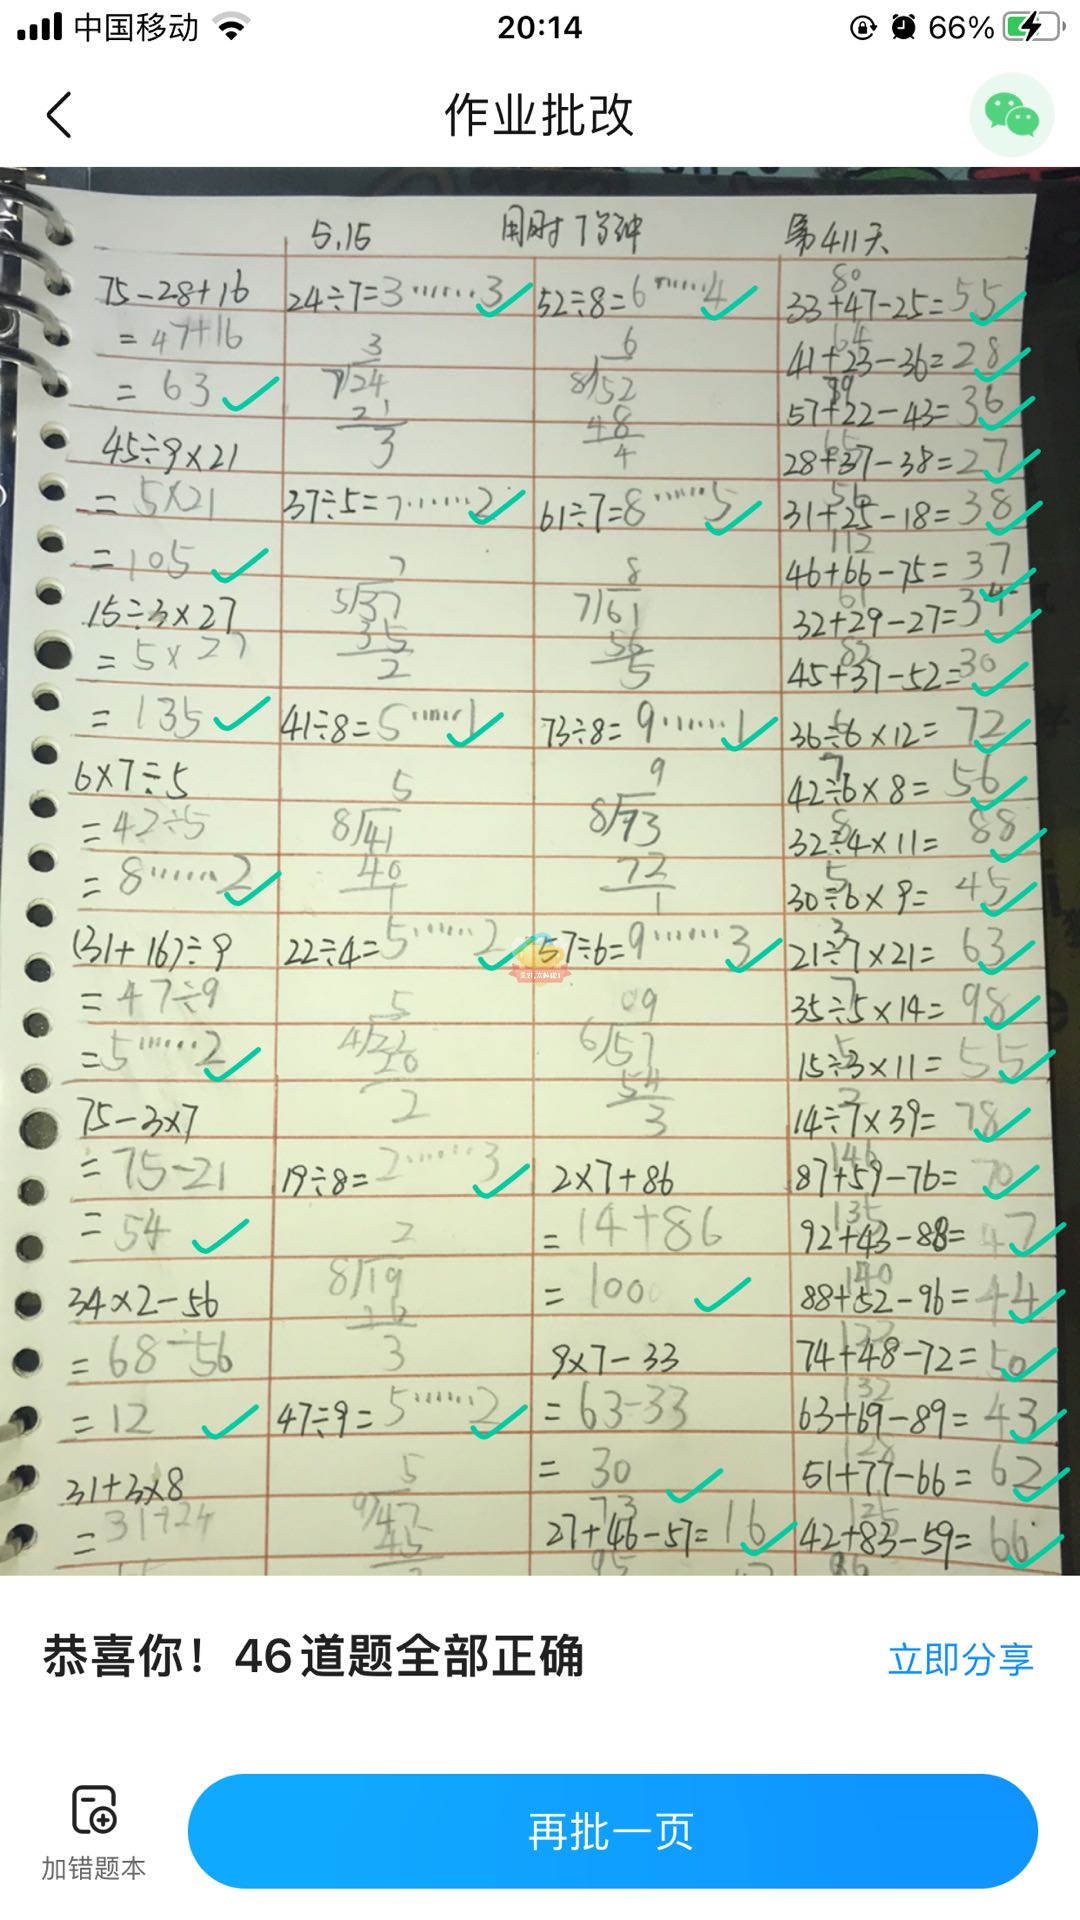 中国移动
20:14
66%
作业批改
5.15
用时7分钟
第411天
75-28+16
= 47+16
= 63
45÷9×21
= 5×21
= 105
15÷3×27
= 5×27
= 135
6×7÷5
= 42÷5
= 8……2
(31+16)÷9
= 47÷9
= 5……2
75-3×7
= 75-21
= 54
34×2-56
= 68-56
= 12
31+3×8
= 31+24
24÷7=3……3
3
7/24
21
3
37÷5=7……2
7
5/37
35
2
41÷8=5……1
5
8/41
40
1
22÷4=5……2
5
4/22
20
2
19÷8=2……3
2
8/19
16
3
47÷9=5……2
5
9/47
45
52÷8=6……4
6
8/52
48
4
61÷7=8……5
8
7/61
56
5
73÷8=9……1
9
8/73
72
1
57÷6=9……3
9
6/57
54
3
2×7+86
= 14+86
= 100
9×7-33
= 63-33
= 30
73
27+46-57=16
95
80
33+47-25=55
64
41+23-36=28
79
57+22-43=36
65
28+37-38=27
56
31+25-18=38
112
46+66-75=37
61
32+29-27=34
82
45+37-52=30
6
36÷6×12=72
7
42÷6×8=56
8
32÷4×11=88
5
30÷6×9=45
3
21÷7×21=63
7
35÷5×14=98
5
15÷3×11=55
2
14÷7×39=78
146
87+59-76=70
135
92+43-88=47
140
88+52-96=44
122
74+48-72=50
132
63+69-89=43
128
51+77-66=62
125
42+83-59=66
恭喜你！46道题全部正确
立即分享
加错题本
再批一页